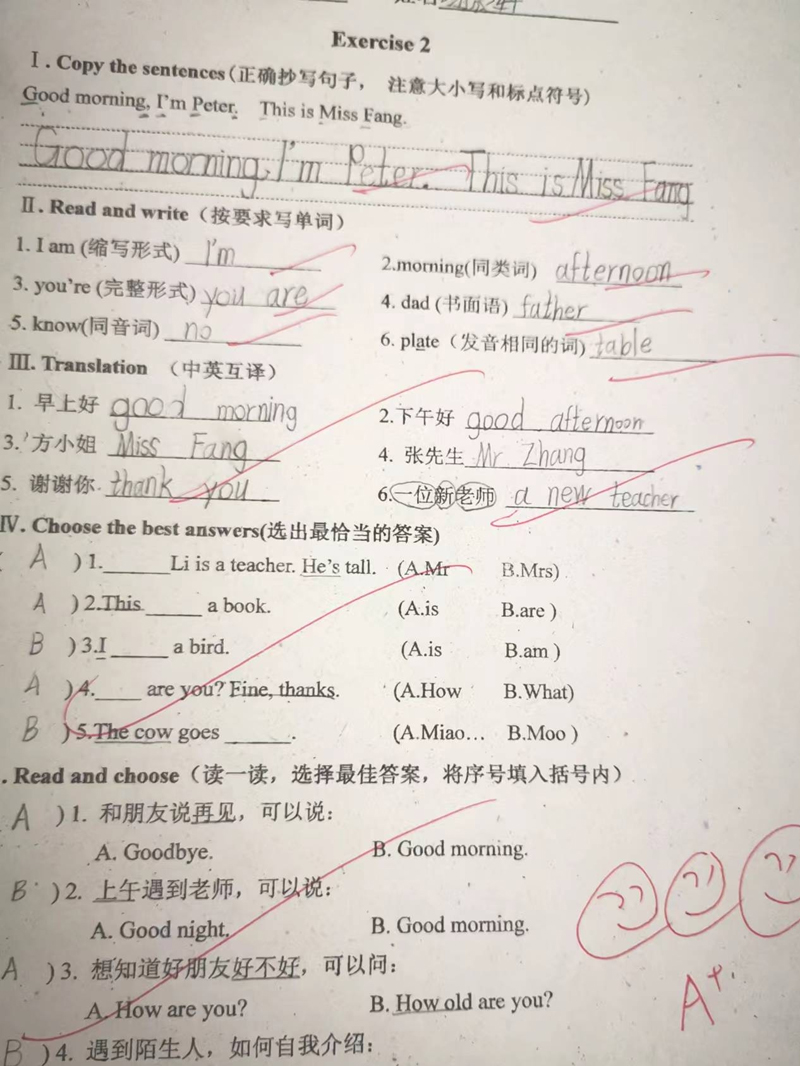 Exercise 2
Ⅰ. Copy the sentences(正确抄写句子， 注意大小写和标点符号)
Good morning, I'm Peter. This is Miss Fang.
Good morning, I'm Peter. This is Miss Fang
Ⅱ. Read and write（按要求写单词）
1. I am (缩写形式) I'm 2.morning(同类词) afternoon
3. you're (完整形式) you are 4. dad (书面语) father
5. know(同音词) no 6. plate（发音相同的词) table
Ⅲ. Translation （中英互译）
1. 早上好 good morning 2.下午好 good afternoon
3. 方小姐 Miss Fang 4. 张先生 Mr Zhang
5. 谢谢你 thank you 6.一位新老师 a new teacher
Ⅳ. Choose the best answers(选出最恰当的答案)
( A )1.______Li is a teacher. He's tall. (A.Mr B.Mrs)
A )2.This _____ a book. (A.is B.are )
B )3.I _____ a bird. (A.is B.am )
A )4.____ are you? Fine, thanks. (A.How B.What)
B )5.The cow goes ______. (A.Miao… B.Moo )
. Read and choose（读一读，选择最佳答案，将序号填入括号内）
A )1. 和朋友说再见，可以说：
A. Goodbye. B. Good morning.
B )2. 上午遇到老师，可以说：
A. Good night, B. Good morning.
A )3. 想知道好朋友好不好，可以问：
A. How are you? B. How old are you?
A+.
B )4. 遇到陌生人，如何自我介绍：